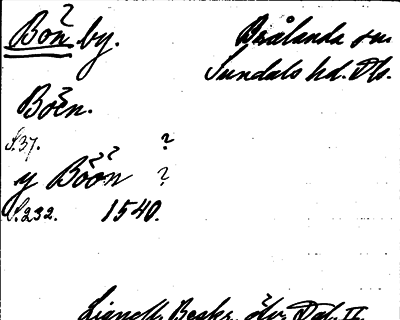 Bön by.
Brålanda sn.
Sundals hd. Dls.
Boën.
S. 37. ?
y Böön ?
S. 232. 1540.
Lignell, Beskr. öfv. Dal. II